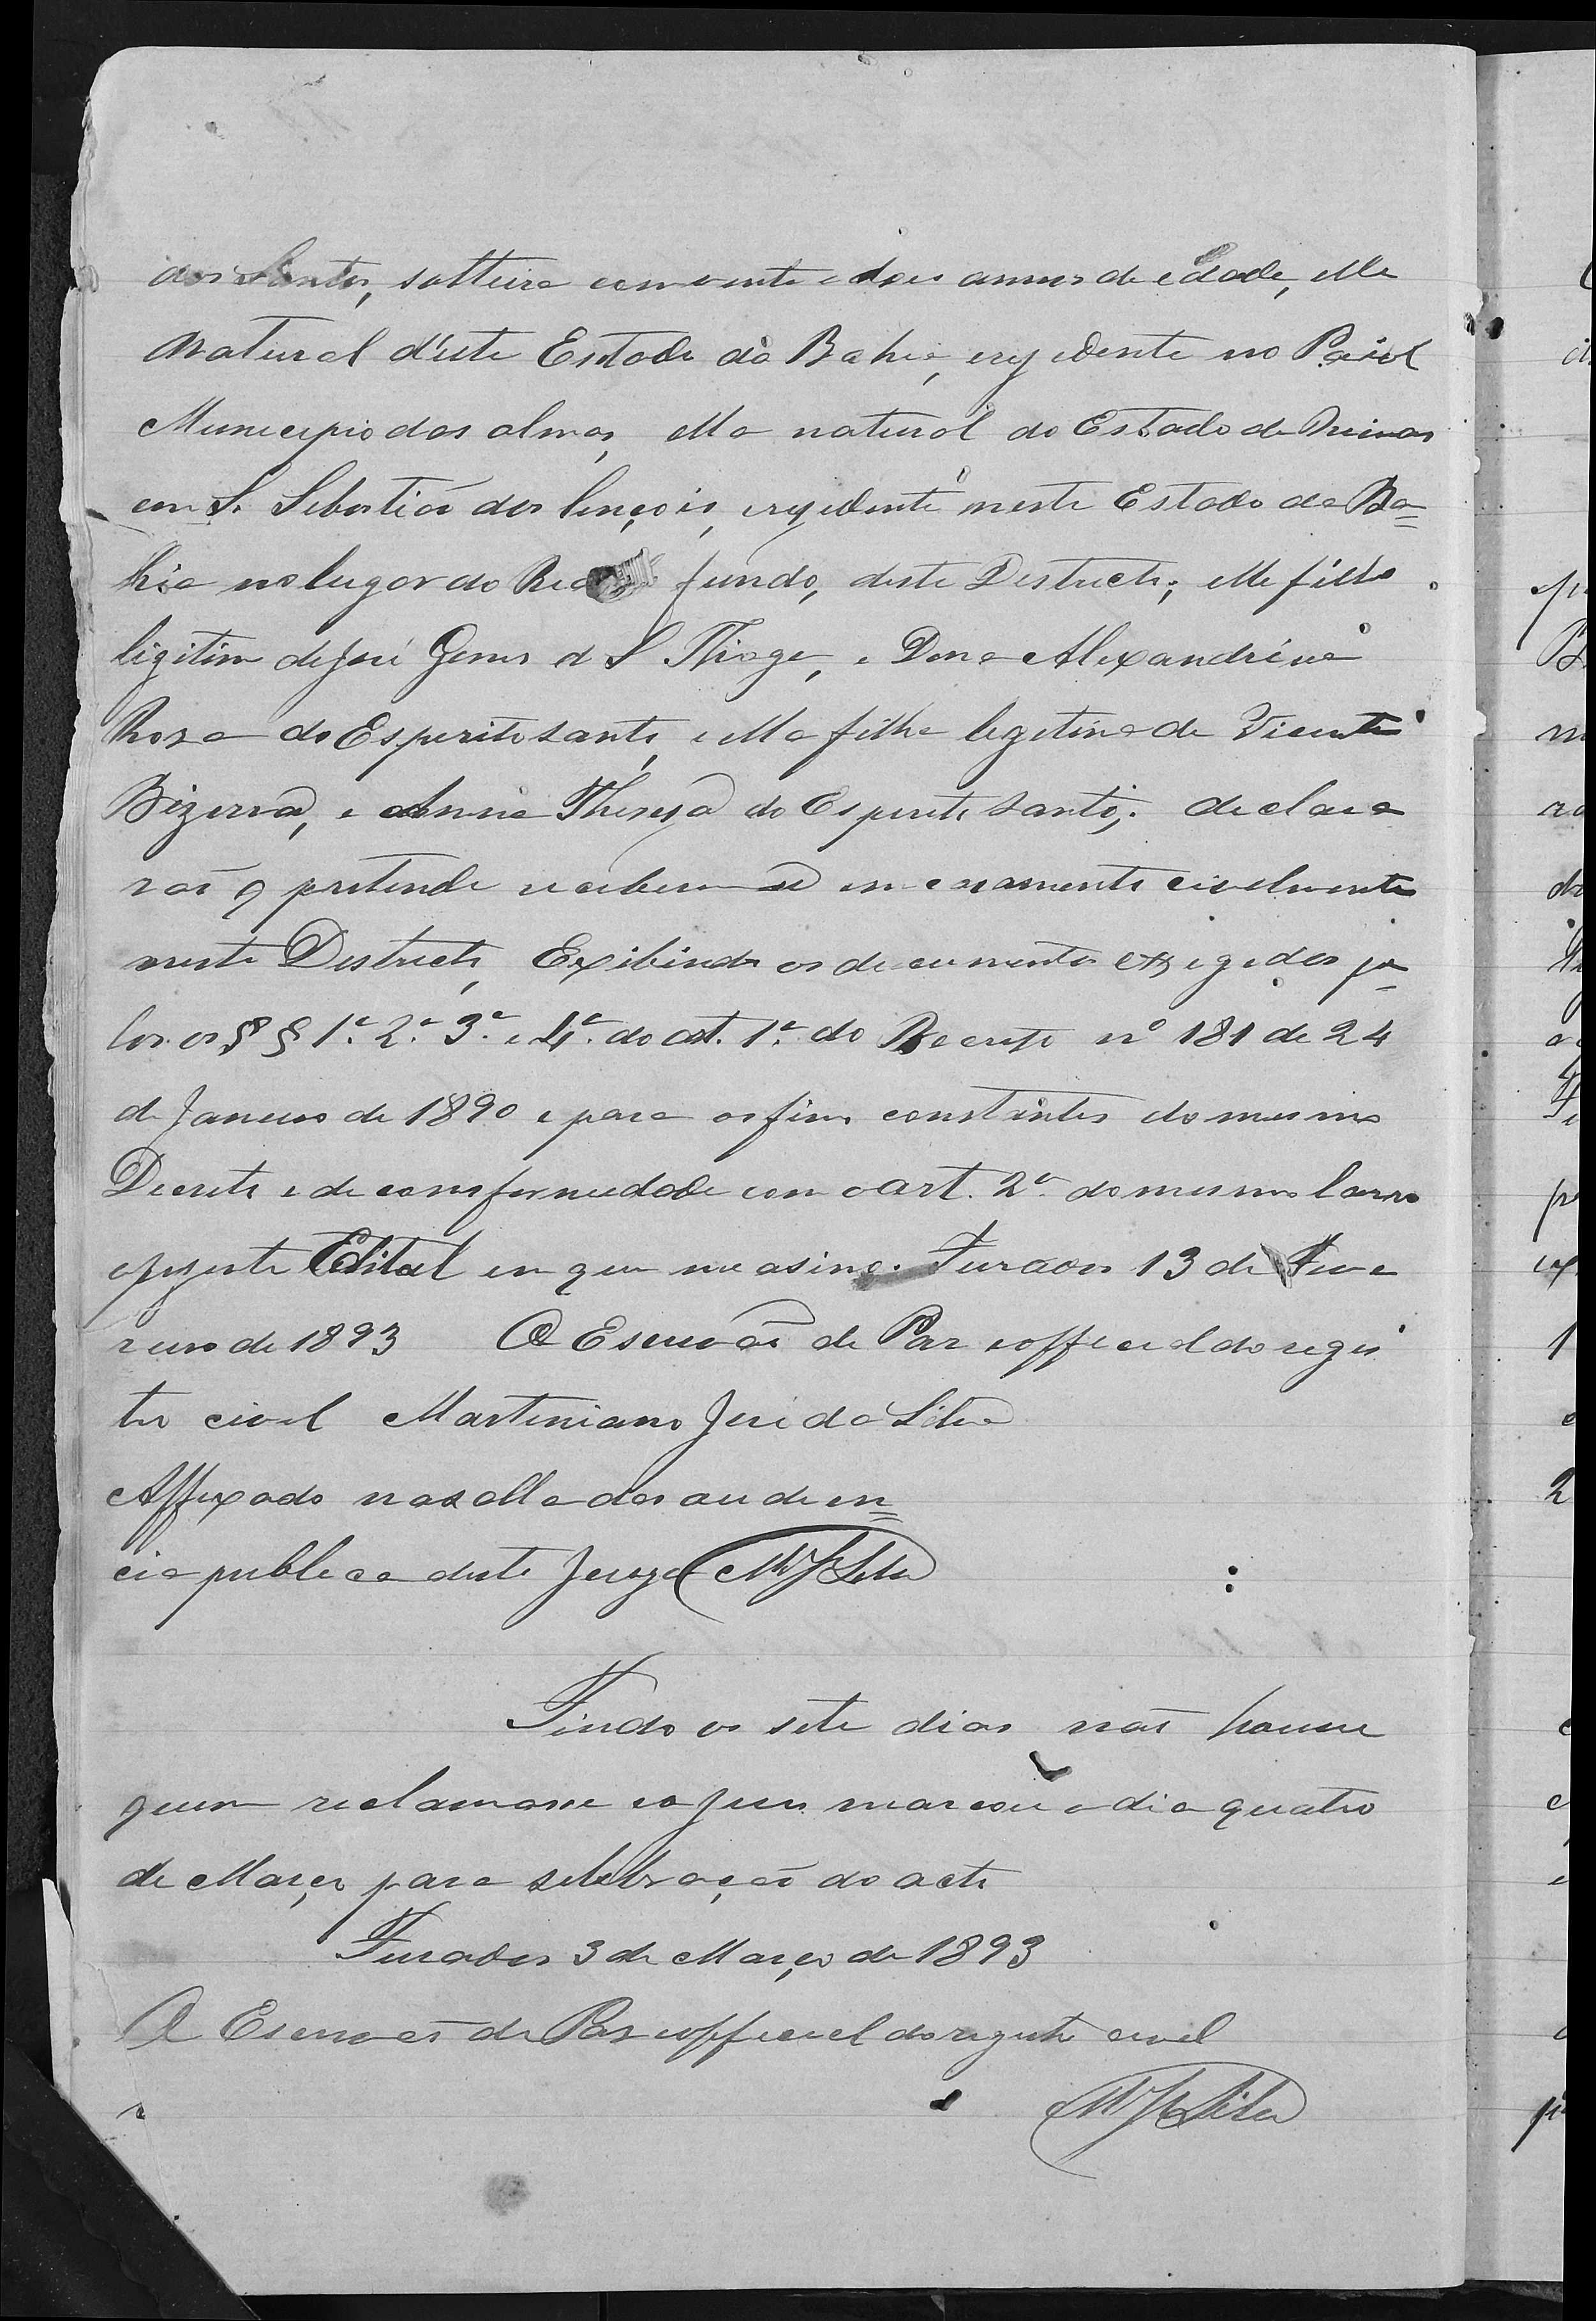 dos Santos, solteira com vinte e dois annos de edade, elle
natural d'este Estado da Bahia, rezidente no Paiol
Municipio das almas, ella natural do Estado de Minas
em S. Sebastião dos lençois, rezidente neste Estado da Ba=
hia no lugar do Riacho fundo, deste Districto; elle filho
ligitimo de José Gomes de S. Thiago, e Dona Alexandrina
Roza do Espirito santo, e ella filha legitima de Vicente
Bizerra, e Anna Thereza do Espirito Santo; declara
rão q pretende receberem se em casamento civelmente
neste Districto, Exibindo os documentos exzigidos pe=
los os §§ 1º. 2º. 3º. e 4º. do art. 1º. do Decreto nº 181 de 24
de Janeiro de 1890 e para os fins constantes do mesmo
Decreto e de conformedade com o art. 2º. do mesmo lavro
o prezente Edital em que me asino. Furados 13 de Feve
reiro de 1893 O Escrivão de Paz e official do regis
tro civel Martiniano José da Silva
Affixado na salla das audien=
cia publica deste Juizo M J Silva
Findo os sete dias não houve
quem reclamasse e o Juis marcou o dia quatro
de Março para selebração do acto
Furados 3 de Março de 1893
O Escrivão de Paz e official do registo civel
M J Silva